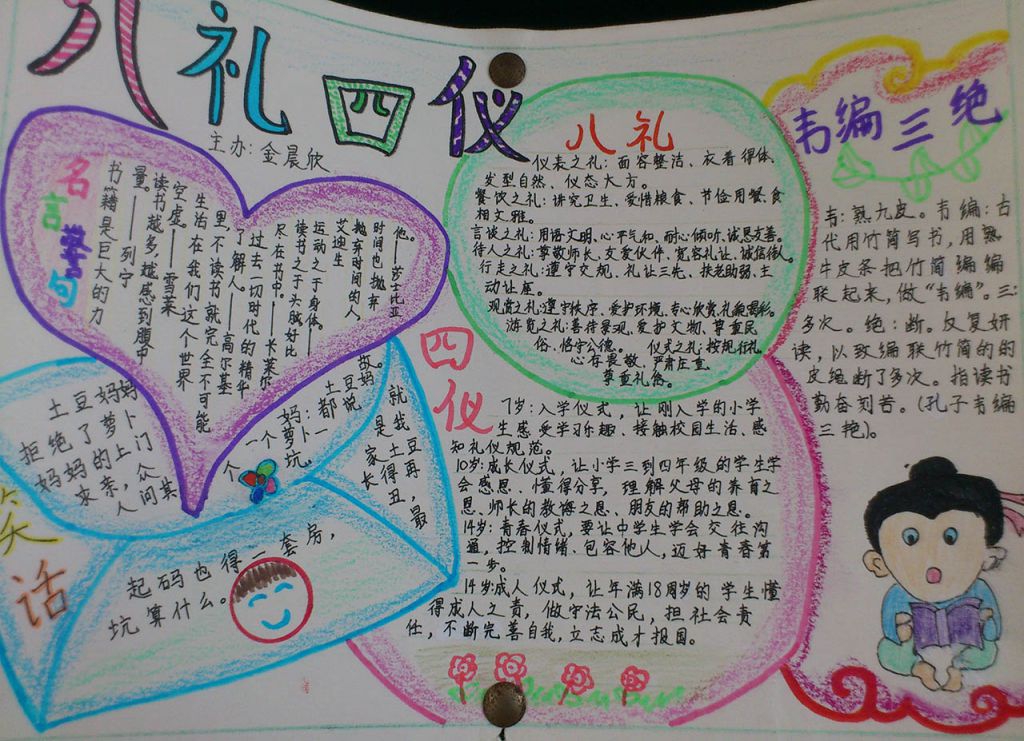 八礼四仪
主办:金晨欣
名言警句
书籍是巨大的力
量。——列宁
读书越多,越感到腹中
空虚。——雪莱
生活在我们这个世界
里,不读书就完全不可能
了解人。——高尔基
过去一切时代的精华
尽在书中。——卡莱尔
读书之于头脑,好比
运动之于身体。——
艾迪生
抛弃时间的人,
时间也抛弃
他。——莎士比亚
八礼
仪表之礼:面容整洁、衣着得体、
发型自然、仪态大方。
餐饮之礼:讲究卫生、爱惜粮食、节俭用餐、食
相文雅。
言谈之礼:用语文明、心平气和、耐心倾听、诚恳友善。
待人之礼:尊敬师长、友爱伙伴、宽容礼让、诚信待人。
行走之礼:遵守交规、礼让三先、扶老助弱、主
动让座。
观赏之礼:遵守秩序、爱护环境、专心欣赏、礼貌喝彩。
游览之礼:善待景观、爱护文物、尊重民
俗、恪守公德。 仪式之礼:按规行礼、
心存畏敬、严肃庄重、
尊重礼俗。
四仪
7岁:入学仪式,让刚入学的小学
生感受学习乐趣、接触校园生活、感
知礼仪规范。
10岁:成长仪式,让小学三到四年级的学生学
会感恩、懂得分享,理解父母的养育之
恩、师长的教诲之恩、朋友的帮助之恩。
14岁:青春仪式,要让中学生学会交往沟
通,控制情绪、包容他人,迈好青春第
一步。
14岁:成人仪式,让年满18周岁的学生懂
得成人之责,做守法公民,担社会责
任,不断完善自我,立志成才报国。
韦编三绝
韦:熟九皮。韦编:古
代用竹简写书,用熟
牛皮条把竹简编编
联起来,做“韦编”。三:
多次。绝:断。反复研
读,以致编联竹简的的
皮绳断了多次。指读书
勤奋刻苦。(孔子韦编
三绝)。
笑话
土豆妈妈
拒绝了萝卜
妈妈的上门
求亲,众人问其
故。妈
土豆
妈:都说
一个萝卜一
个坑。
就我
是土豆
家得再
长丑,最
起码也得一套房,
坑算什么。